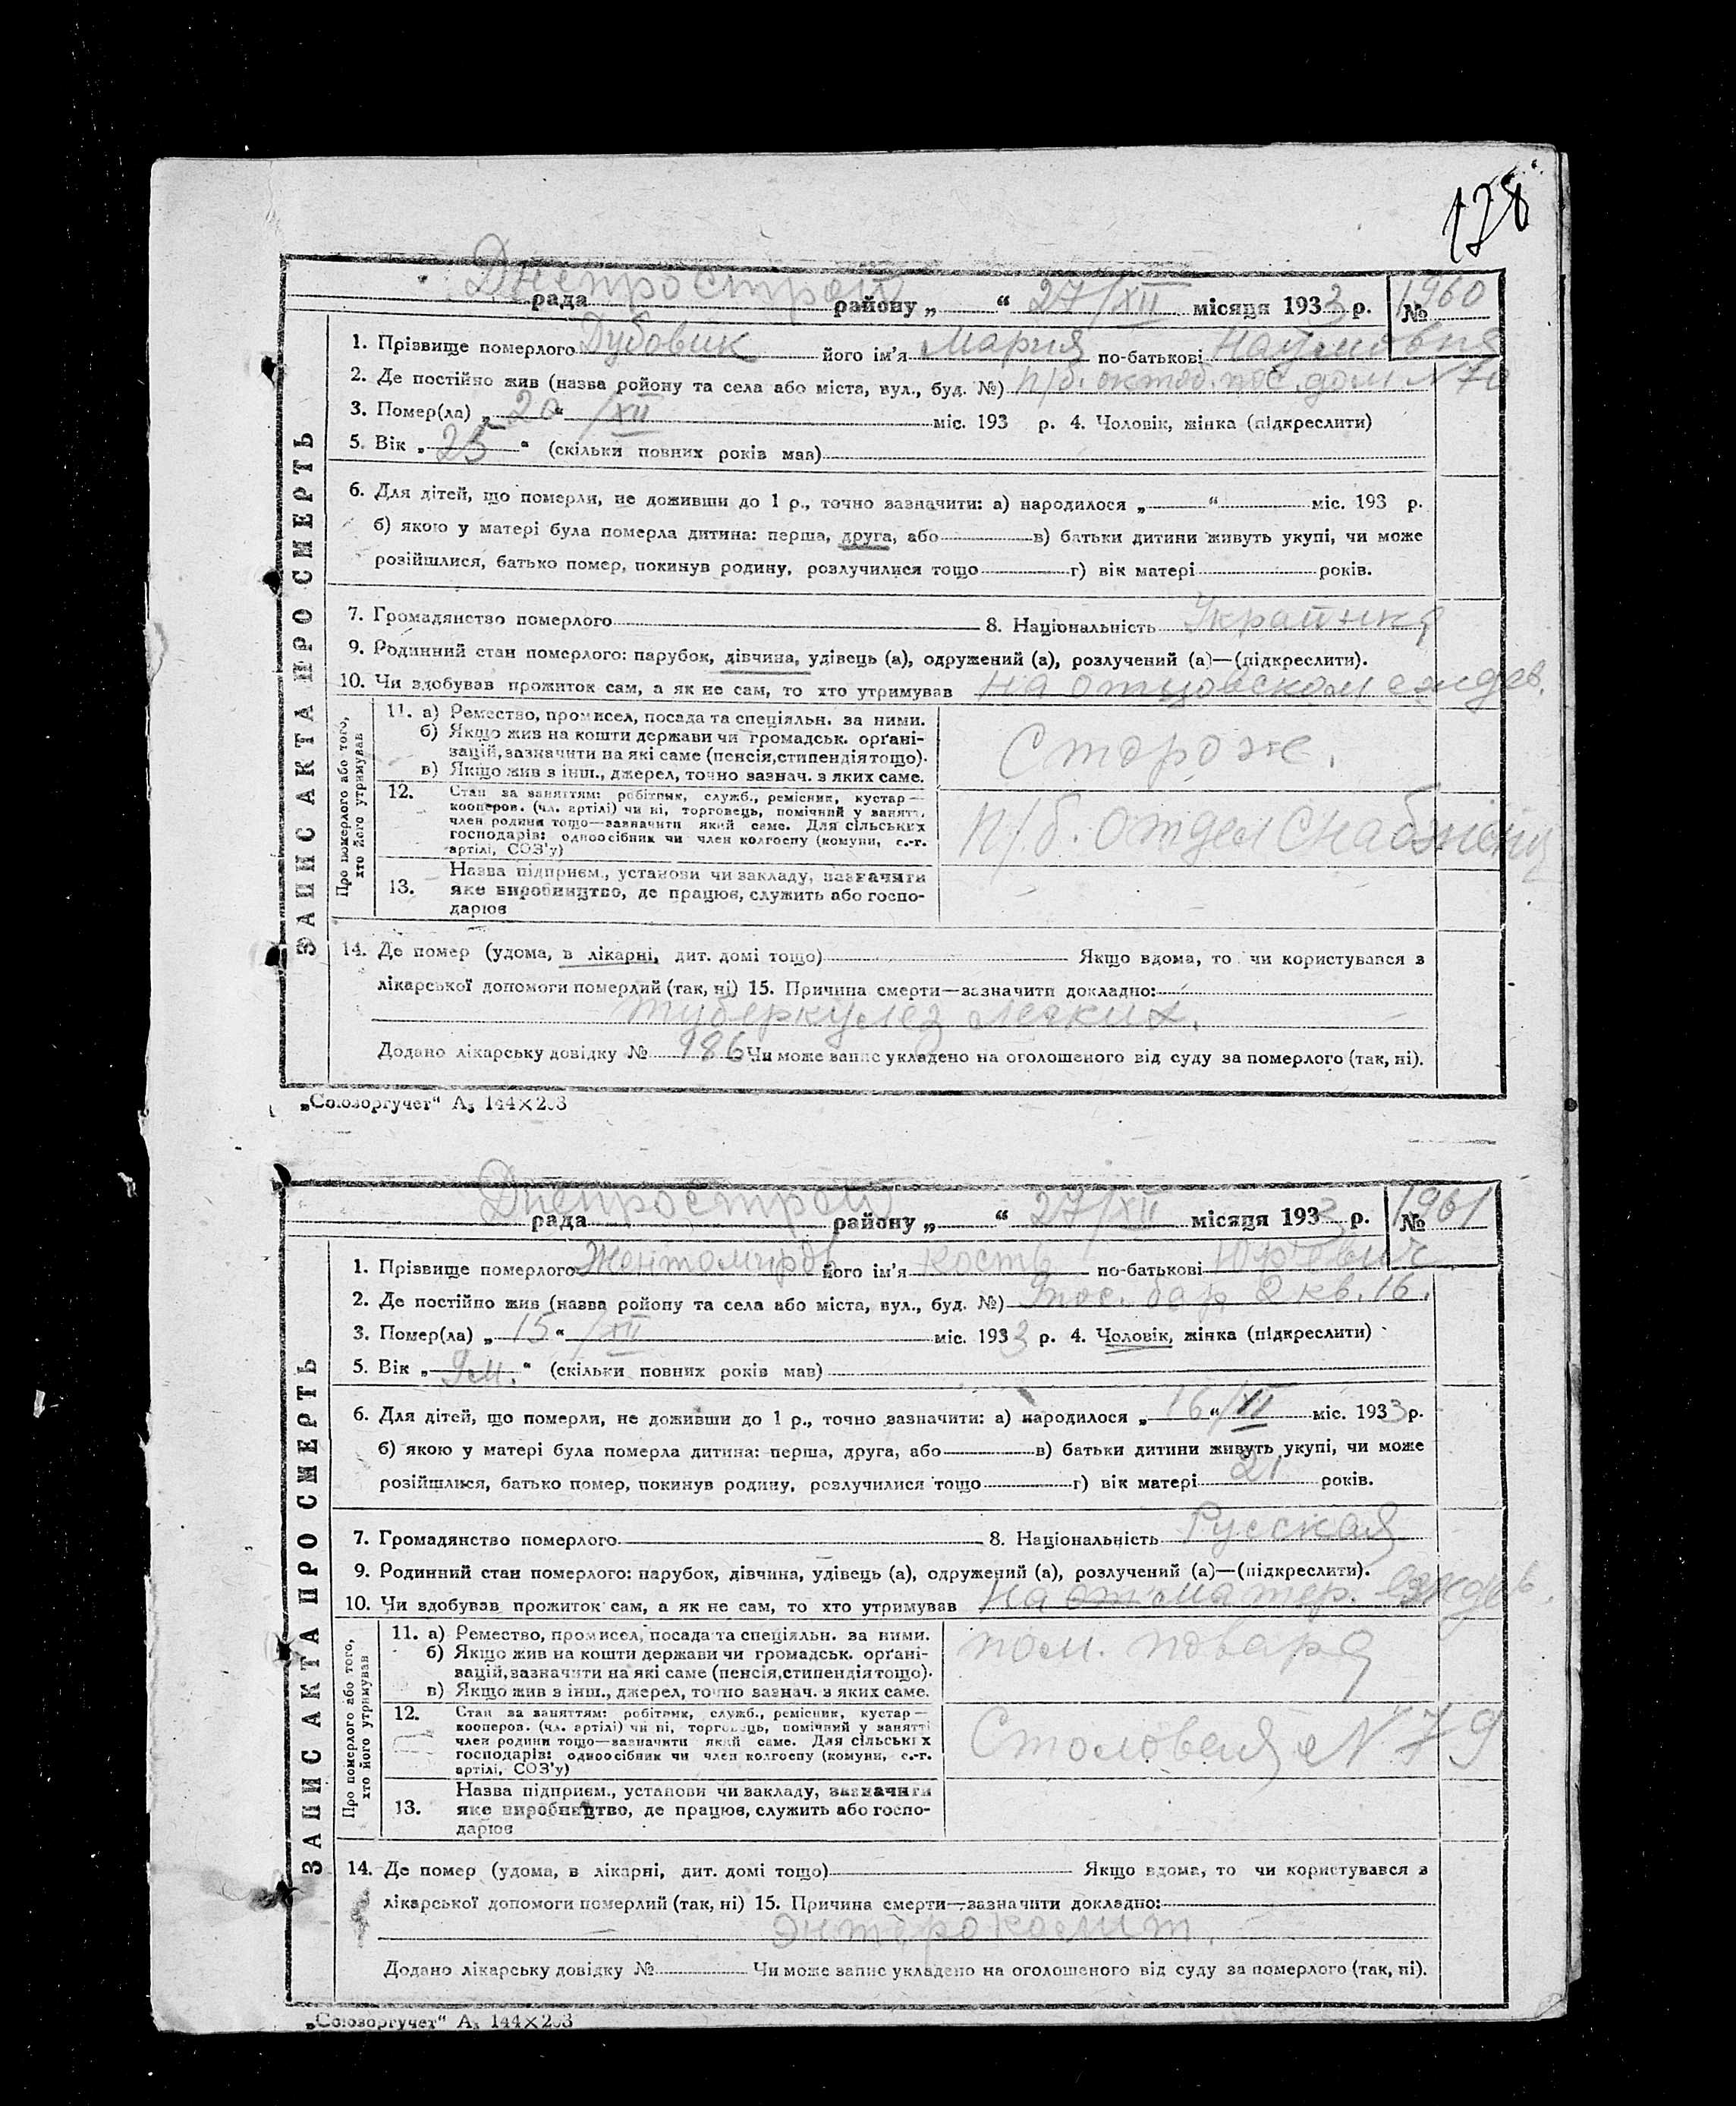 128
Днепрострой
рада районy „ “ 27/XII місяця 1933 р. № 1960
1. Прізвище померлого Дубовик його ім'я Мария по-батькові Наумовна
2. Де постійно жив (назва ройону та села або міста, вул., буд. №) п/б. октяб. пос. дом №
3. Помер(ла) „ 20 “ /XII міс. 193 р. 4. Чоловік, жінка (підкреслити)
5. Вік „ 25 “ (скільки повних років мав)
6. Для дітей, що померли, не доживши до 1 р., точно зазначити: а) народилося „ “ міс. 193 р.
б) якою у матері була померла дитина: перша, друга, або в) батьки дитини живуть укупі, чи може
розійшлися, батько помер, покинув родину, розлучилися тощо г) вік матері років.
7. Громадянство померлого 8. Національність Украинка
9. Родинний стан померлого: парубок, дівчина, удівець (а), одружений (а), розлучений (а)—(підкреслити).
10. Чи здобував прожиток сам, а як не сам, то хто утримував на отцовском иждев.
ЗАПИС АКТА ПРО СМЕРТЬ
Про померлого або того,
хто його утримував
11. а) Ремество, промисел, посада та спеціяльн. за ними.
б) Якщо жив на кошти держави чи громадськ. орґані-
зацій, зазначити на які саме (пенсія, стипендія тощо).
в) Якщо жив з інш., джерел, точно зазнач. з яких саме.
Сторож.
12. Стан за заняттям: робітник, служб., ремісник, кустар—
кооперов. (чл. артілі) чи ні, торговець, помічний у занятт.
член родини тощо—зазначити який саме. Для сільських
господарів: одноосібник чи член колгоспу (комуни, с.-г.
артілі, СОЗ'у)
п/б. отдел снабжения
13. Назва підприєм., установи чи закладу, зазначити
яке виробництво, де працює, служить або госпо-
дарює
14. Де помер (удома, в лікарні, дит. домі тощо) Якщо вдома, то чи користувався з
лікарської допомоги померлий (так, ні) 15. Причина смерти—зазначити докладно:
туберкулез легких.
Додано лікарську довідку № 986 Чи може запис укладено на оголошеного від суду за померлого (так, ні).
„Союзоргучет“ А₅ 144×203
Днепрострой
рада району „ “ 27/XII місяця 1933 р. № 1961
1. Прізвище померлого його ім'я Кость по-батькові Юрьевич
2. Де постійно жив (назва ройону та села або міста, вул., буд. №) пос. бар 2 кв. 16.
3. Помер(ла) „ 15 “ /XII міс. 1933 р. 4. Чоловік, жінка (підкреслити)
5. Вік „ 9 м. “ (скільки повних років мав)
6. Для дітей, що померли, не доживши до 1 р., точно зазначити: а) народилося „ 16 “ / міс. 1933 р.
б) якою у матері була померла дитина: перша, друга, або в) батьки дитини живуть укупі, чи може
розійшлися, батько помер, покинув родину, розлучилися тощо г) вік матері 21 років.
7. Громадянство померлого 8. Національність Русская
9. Родинний стан померлого: парубок, дівчина, удівець (а), одружений (а), розлучений (а)—(підкреслити).
10. Чи здобував прожиток сам, а як не сам, то хто утримував на матер. иждев.
ЗАПИС АКТА ПРО СМЕРТЬ
Про померлого або того,
хто його утримував
11. а) Ремество, промисел, посада та спеціяльн. за ними.
б) Якщо жив на кошти держави чи громадськ. орґані-
зацій, зазначити на які саме (пенсія, стипендія тощо).
в) Якщо жив з інш., джерел, точно зазнач. з яких саме.
пом. повара
12. Стан за заняттям: робітник, служб., ремісник, кустар—
кооперов. (чл. артілі) чи ні, торговець, помічний у занятті
член родини тощо—зазначити який саме. Для сільських
господарів: одноосібник чи член колгоспу (комуни, с.-г.
артілі, СОЗ'у)
Столовая № 79
13. Назва підприєм., установи чи закладу, зазначити
яке виробництво, де працює, служить або госпо-
дарює
14. Де помер (удома, в лікарні, дит. домі тощо) Якщо вдома, то чи користувався з
лікарської допомоги померлий (так, ні) 15. Причина смерти—зазначити докладно:
энтероколит.
Додано лікарську довідку № Чи може запис укладено на оголошеного від суду за померлого (так, ні).
„Союзоргучет“ А₅ 144×203